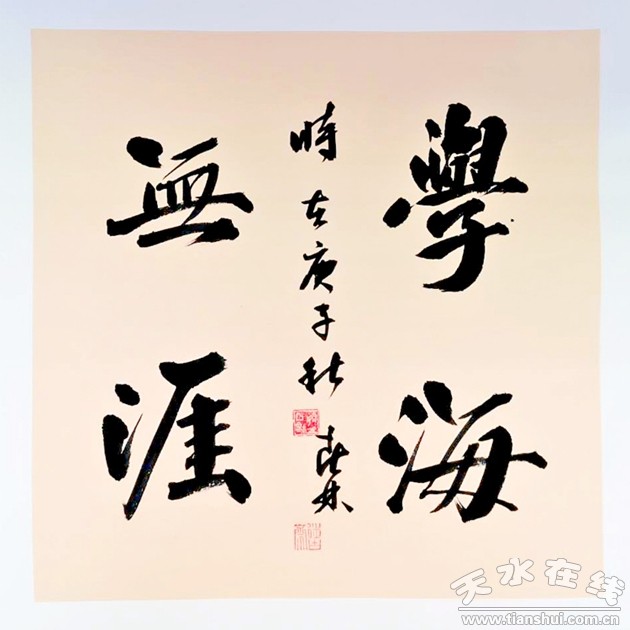 學海
無涯
時在庚子秋
天水在线
www.tianshui.com.cn